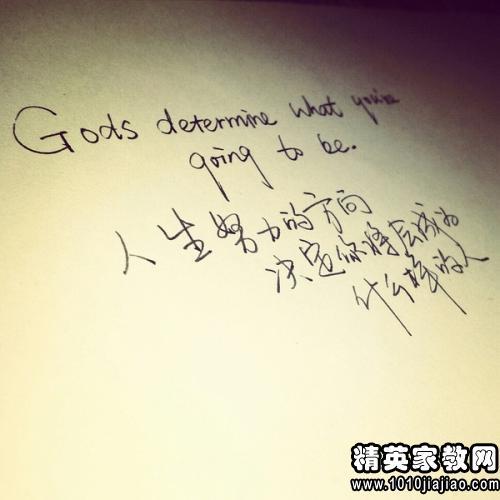 Gods determine what you're
going to be.
人生努力的方向
决定你将会成为
什么样的人
精英家教网
www.1010jiajiao.com